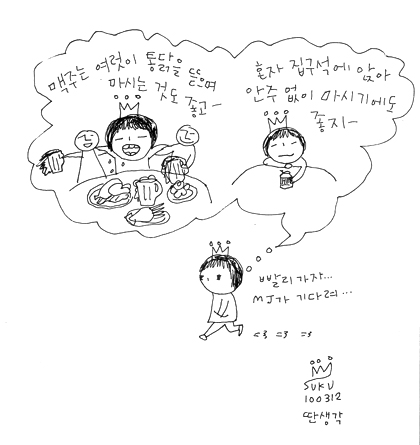 맥주는 여럿이 통닭을 뜯으며
마시는 것도 좋고~
혼자 집구석에 앉아
안주 없이 마시기에도
좋지~
빨리 가자...
MJ가 기다려...
=3 =3 =3
SUKU
100312
딴생각